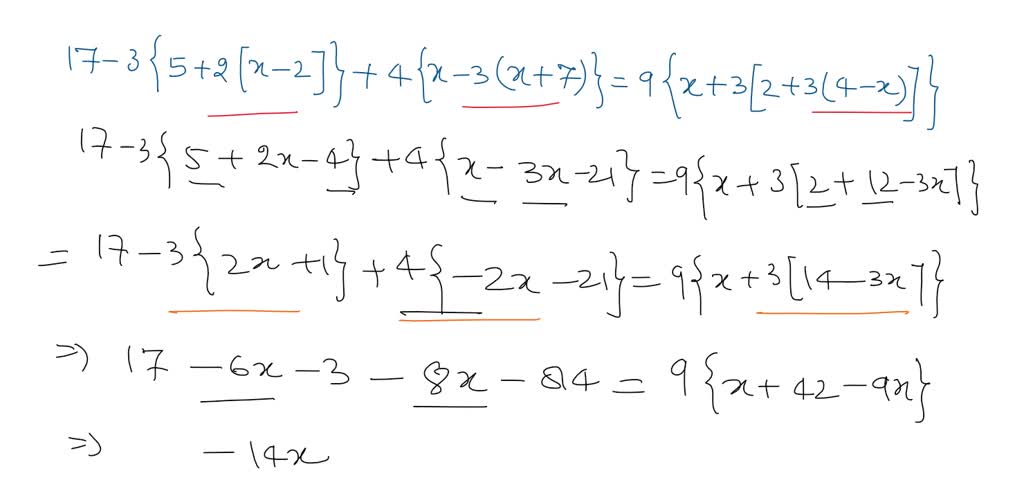 17-3{5+2[x-2]}+4{x-3(x+7)}=9{x+3[2+3(4-x)]}
17-3{5+2x-4}+4{x-3x-21}=9{x+3[2+12-3x]}
= 17-3{2x+1}+4{-2x-21}=9{x+3[14-3x]}
⇒ 17-6x-3-8x-84=9{x+42-9x}
⇒ -14x